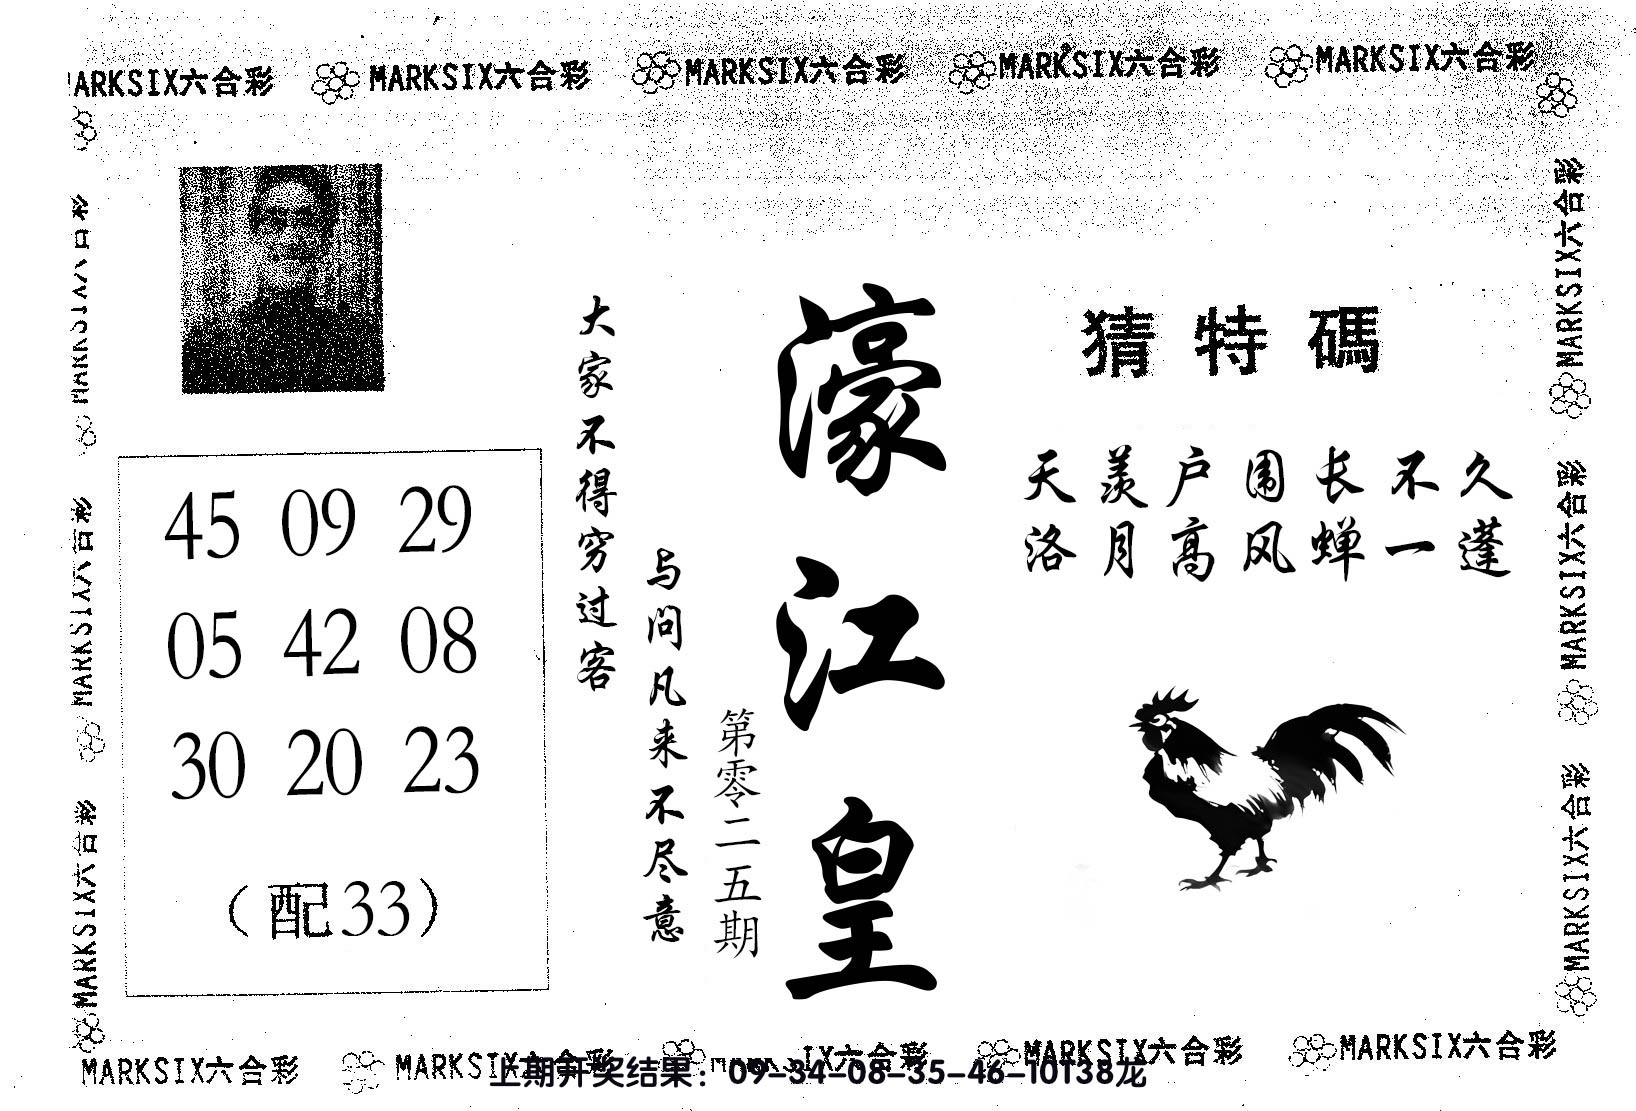 MARKSIX六合彩 MARKSIX六合彩 MARKSIX六合彩 MARKSIX六合彩 MARKSIX六合彩
猜特碼
天羡户围长不久
洛月高风蝉一蓬
濠江皇
第零二五期
与问凡来不尽意
大家不得穷过客
45 09 29
05 42 08
30 20 23
(配33)
MARKSIX六合彩
MARKSIX六合彩
MARKSIX六合彩
MARKSIX六合彩
MARKSIX六合彩
MARKSIX六合彩
MARKSIX六合彩 MARKSIX六合彩 MARKSIX六合彩 MARKSIX六合彩
上期开奖结果：09-34-08-35-46-10T38龙